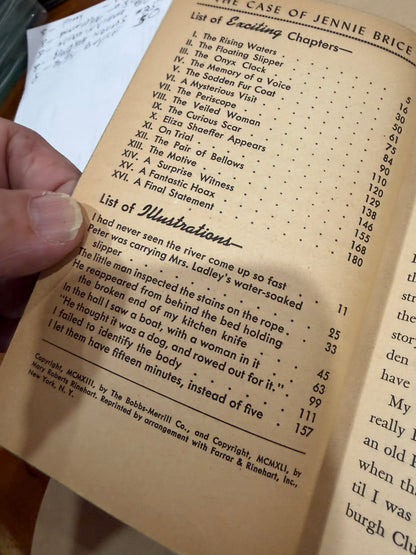 THE CASE OF JENNIE BRICE
List of Exciting Chapters—
I. The Rising Waters
II. The Floating Slipper . . . 16
III. The Onyx Clock . . . 30
IV. The Memory of a Voice . . . 50
V. The Sodden Fur Coat . . . 61
VI. A Mysterious Visit . . . 75
VII. The Periscope . . . 84
VIII. The Veiled Woman . . . 90
IX. The Curious Scar . . . 110
X. Eliza Shaeffer Appears . . . 120
XI. On Trial . . . 129
XII. The Pair of Bellows . . . 138
XIII. The Motive . . . 146
XIV. A Surprise Witness . . . 155
XV. A Fantastic Hoax . . . 168
XVI. A Final Statement . . . 180
List of Illustrations—
I had never seen the river come up so fast . 11
Peter was carrying Mrs. Ladley's water-soaked
slipper . . . 25
The little man inspected the stains on the rope . 33
He reappeared from behind the bed holding
the broken end of my kitchen knife . . . 45
In the hall I saw a boat, with a woman in it . 63
"He thought it was a dog, and rowed out for it." . 99
I failed to identify the body . . . 111
I let them have fifteen minutes, instead of five . 157
Copyright, MCMXIII, by The Bobbs-Merrill Co., and Copyright, MCMXLI, by
Mary Roberts Rinehart. Reprinted by arrangement with Farrar & Rinehart, Inc.,
New York, N. Y.
the
story
den
have
My
really I
an old
when tha
til I was
burgh Clu